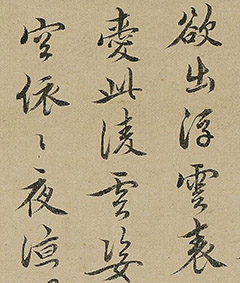 欲出浮雲表
愛此淩雲姿
空依〻夜